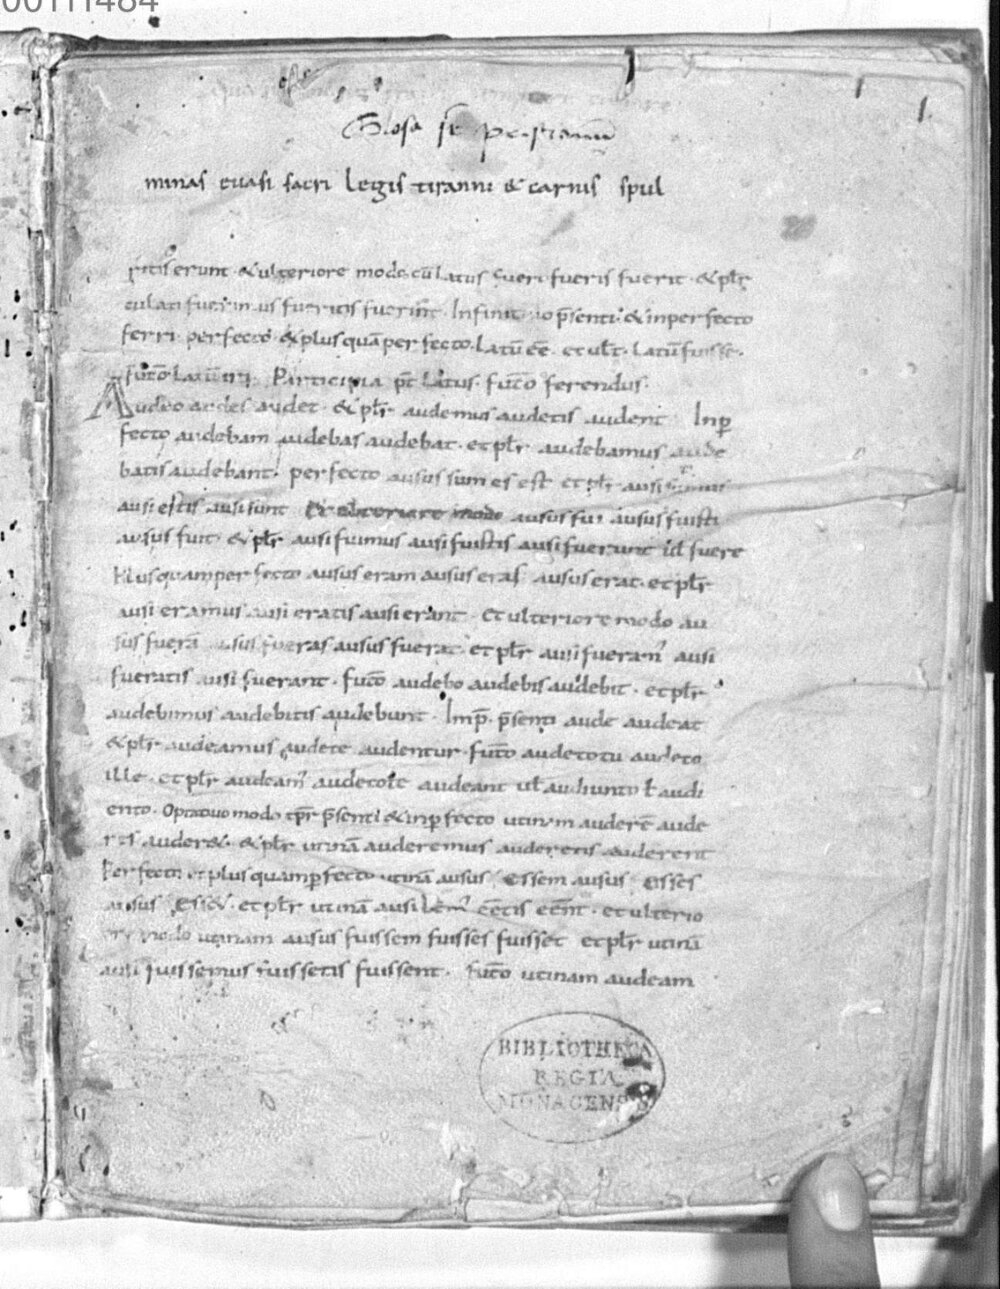 00111484
1.
Glosa sr pristianum
minas euasi sacri legis tiranni & carnis spul
ritis erunt · & ulteriore modo cū latus fueri fueris fuerit · & plr̄
culati fuerimus fueritis fuerint · Infinitiuo p̄senti · & inperfecto
ferri · perfecto · & plus quā perfecto · Latū eē · et ult · latū fuisse ·
Futo latū iri · Participia p̄t Latus · futō ferendus ·
Audeo audes audet · & plr̄ audemus audetis audent Inp̄
fecto audebam audebas audebat · et plr̄ audebamus aude
batis audebant · perfecto ausus sum es est et plr̄ ausi sumus
ausi estis ausi sunt Et ulteriore modo ausus fui ausus fuisti
ausus fuit · & plr̄ ausi fuimus ausi fuistis ausi fuerunt ul fuere
Plusquamperfecto ausus eram ausus eras ausus erat · et plr̄
ausi eramus ausi eratis ausi erant · et ulteriore modo au
sus fuerā ausus fueras ausus fuerat · et plr̄ ausi fueram' ausi
fueratis ausi fuerant · futō audebo audebis audebit · et plr̄
audebimus audebitis audebunt · Imp̄ · p̄senti aude audeat
& plr̄ audeamus audete audentur · futō audeto tu audeto
ille · et plr̄ audeam' audetote audeant ul audiunto ł audi
ento · Optatiuo modo tp̄r p̄senti & inp̄fecto utinam auderē aude
res auder& · & plr̄ utinā auderemus auderetis auderent
Perfecto et plusquamp̄fecto utinā ausus essem ausus esses
ausus esset · et plr̄ utinā ausi eēm' eētis eēnt · et ulterio
ore modo utinam ausus fuissem fuisses fuisset et plr̄ utinā
ausi fuissemus fuissetis fuissent · Futō utinam audeam
BIBLIOTHECA
REGIA
MONACENSIS